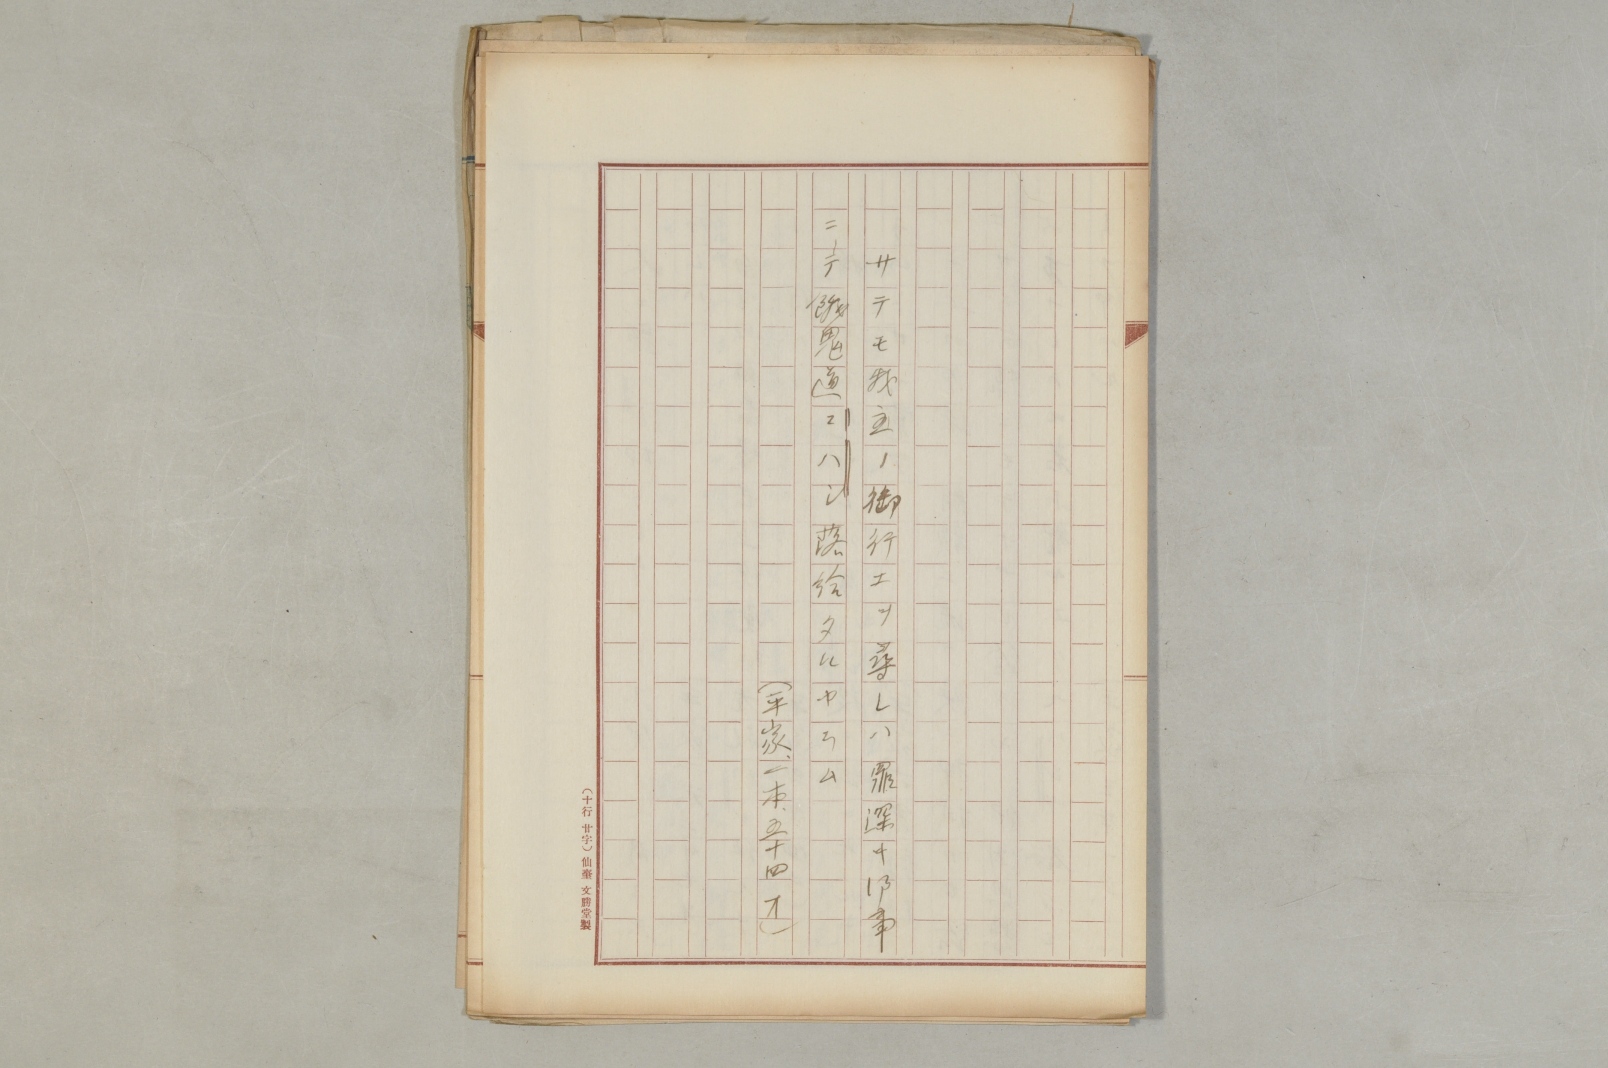 サテモ我主ノ御行エヲ尋レハ罪深キ御事
ニテ餓鬼道ニハシ落給タルヤラム
（平家、一本、五十四オ）
（十行 廿字）仙臺 文勝堂製